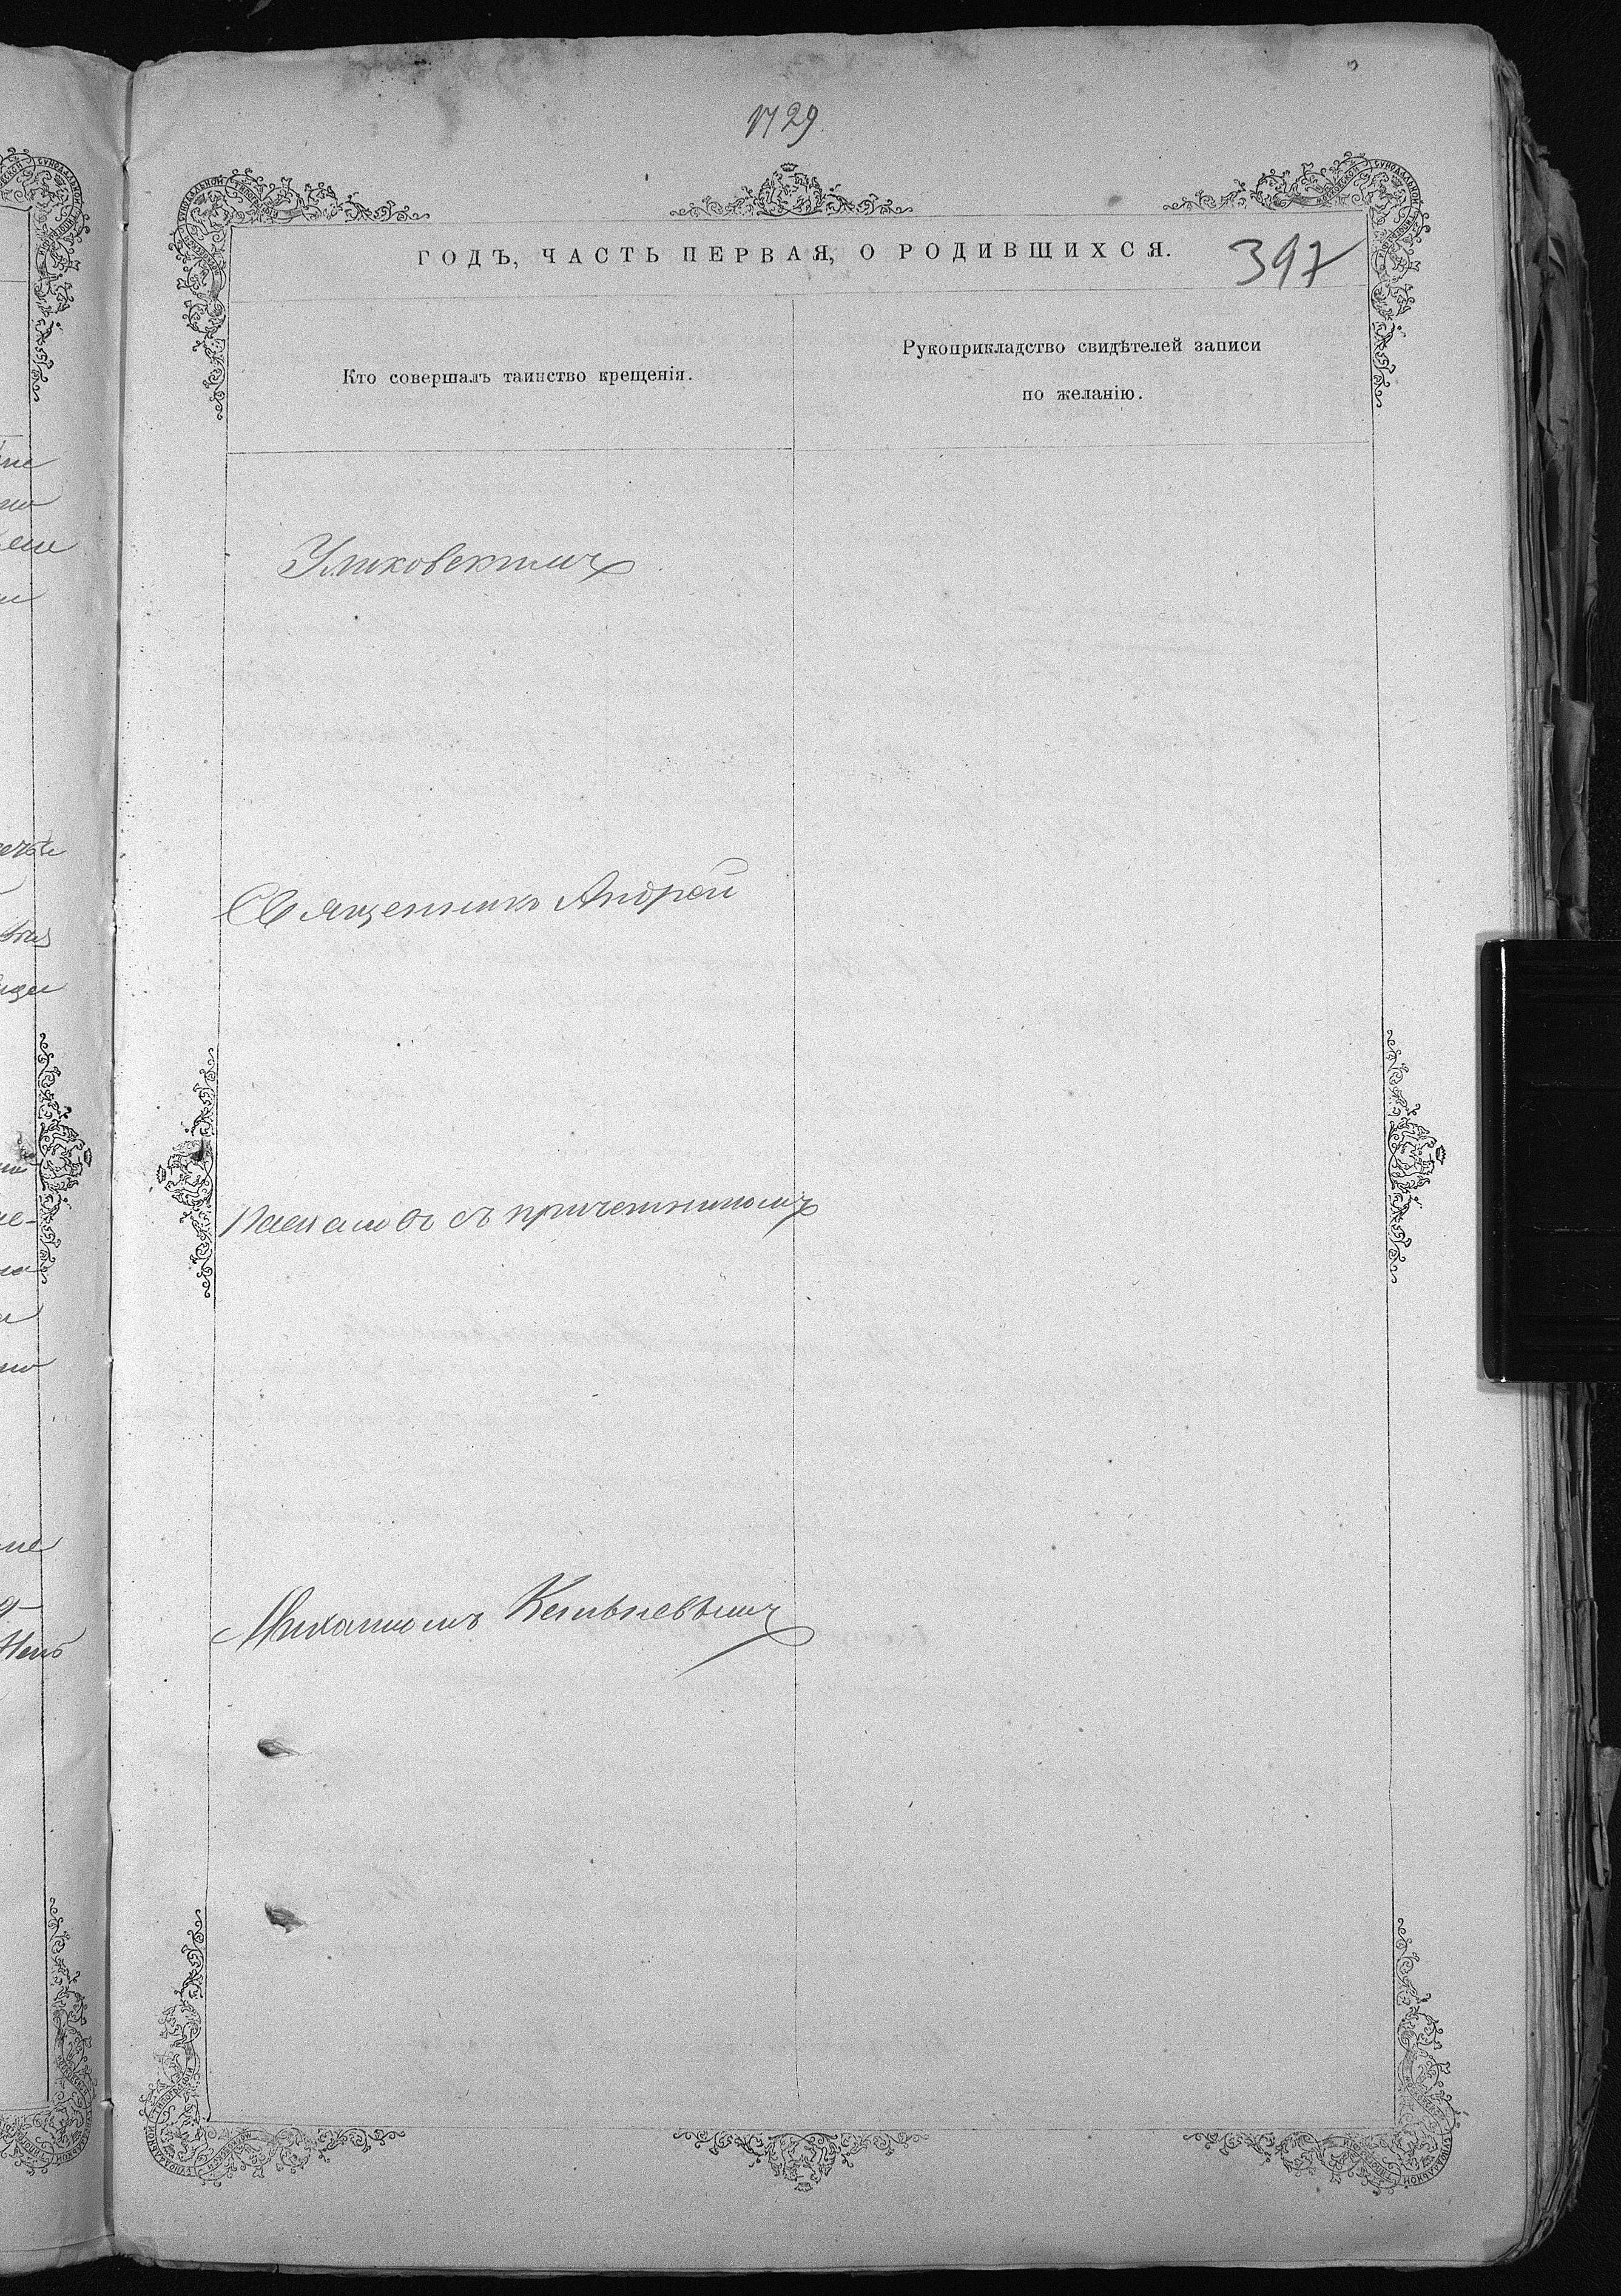 1729
ГОДЪ, ЧАСТЬ ПЕРВАЯ, О РОДИВШИХСЯ.
397
Кто совершалъ таинство крещенія.
Рукоприкладство свидѣтелей записи
по желанію.
Священникъ Андрей
съ причетникомъ
Михаиломъ